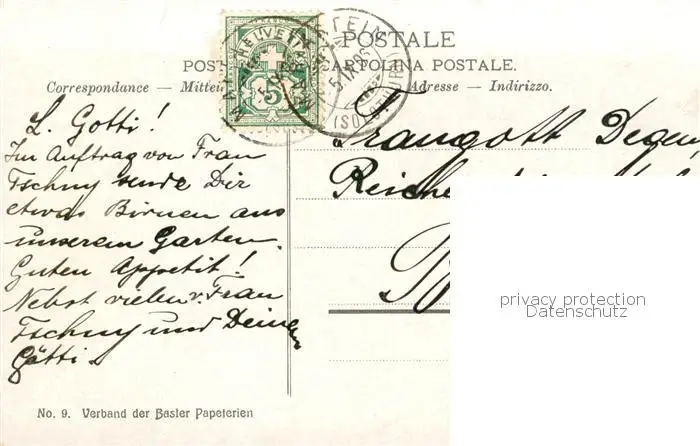 POSTALE
POST
CARTOLINA POSTALE.
Correspondance — Mittei
Adresse — Indirizzo.
HELVETIA
5
L. Gotti!
Im Auftrag von Frau
Tschuy sende Dir
etwas Birnen aus
unserem Garten.
Guten Appetit!
Nebst vielen v. Frau
Tschuy und Deinem
Götti.
Traugott Degen,
Reiche
privacy protection
Datenschutz
No. 9. Verband der Basler Papeterien